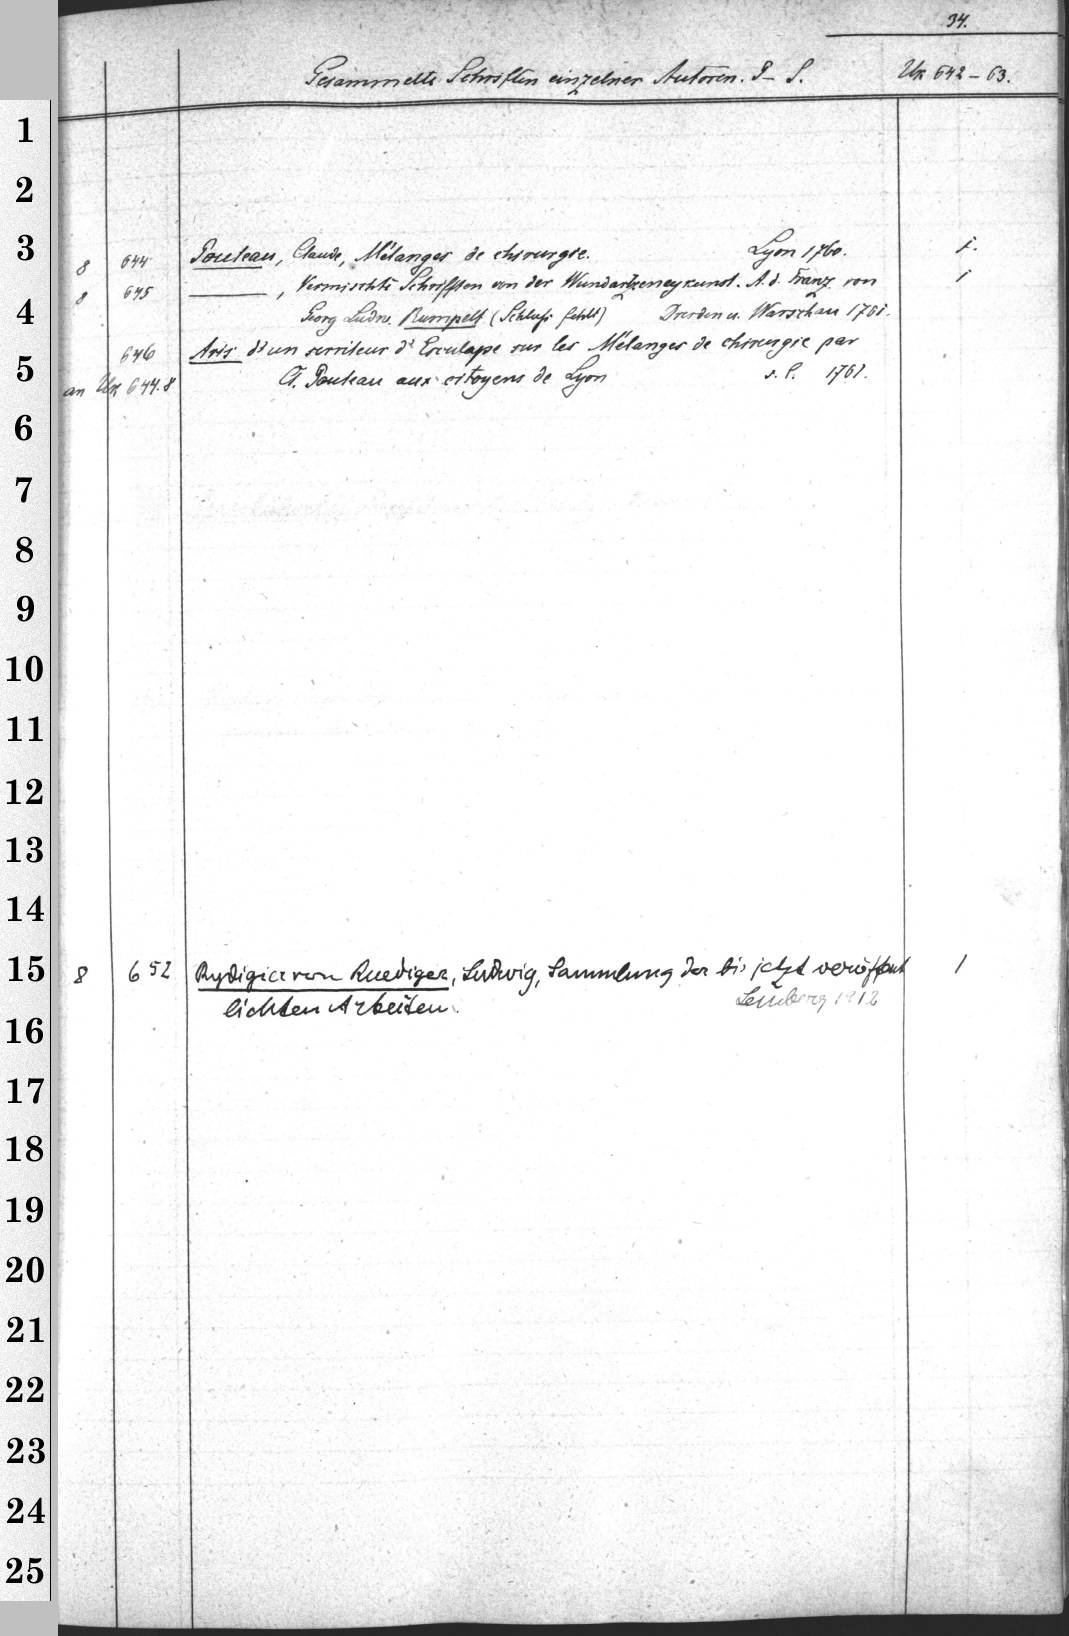 34.
Gesammelte Schriften einzelner Autoren. P–S. Uk 642–63.
1
2
3
8 644 Pouteau, Claude, Mélanges de chirurgie. Lyon 1760. 1.
8 645 ———, Vermischte Schrifften von der Wundartzeneykunst. A. d. Franz. von 1
4
Georg Ludw. Rumpelt (Schluß fehlt) Dresden u. Warschau 1761.
646 Avis d'un serviteur d'Esculape sur les Mélanges de chirurgie par
5
an Uk 644.8 Cl. Pouteau aux citoyens de Lyon s. l. 1761.
6
7
8
9
10
11
12
13
14
15
8 652 Rydigier von Ruediger, Ludwig, Sammlung der bis jetzt veröffent 1
lichten Arbeiten. Lemberg 1912
16
17
18
19
20
21
22
23
24
25